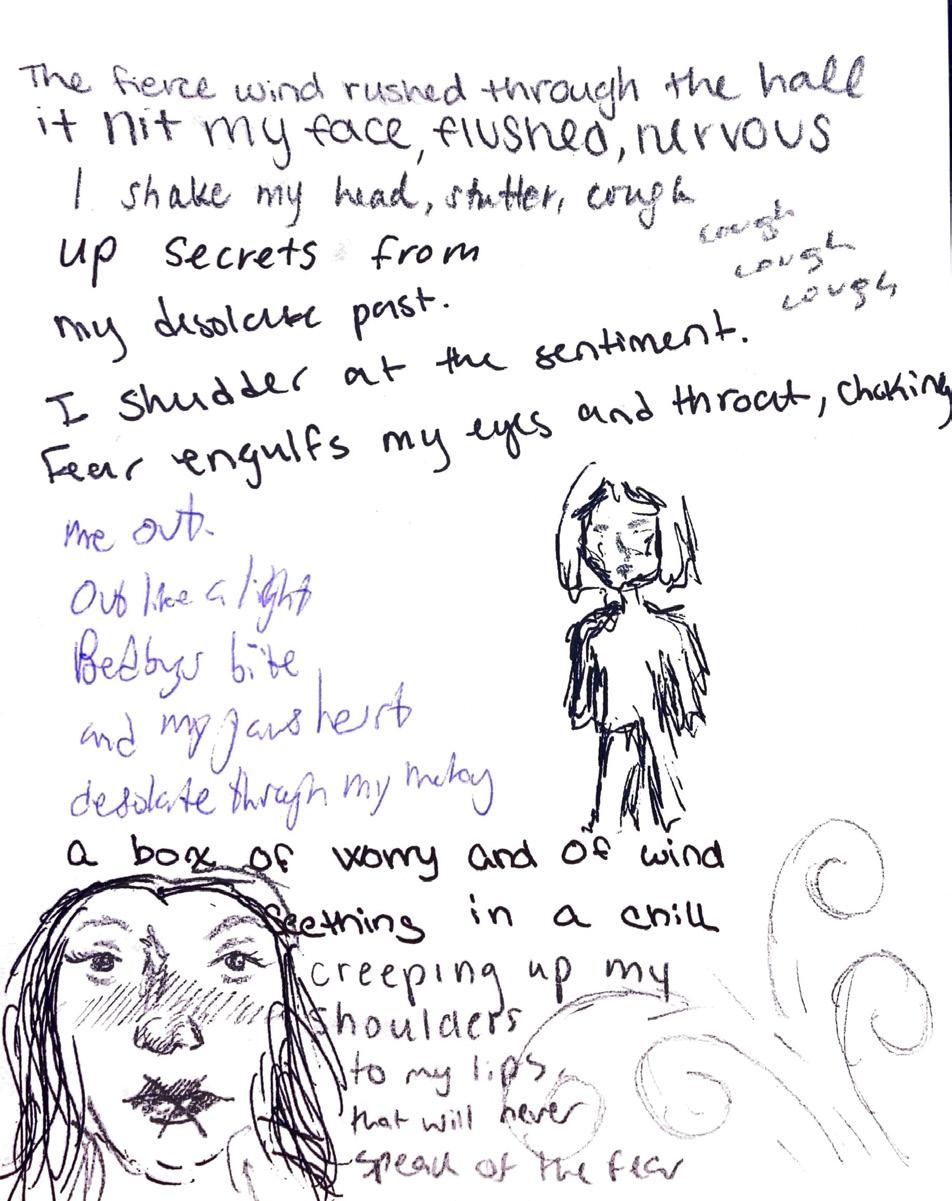 The fierce wind rushed through the hall
it hit my face, flushed, nervous
I shake my head, stutter, cough
cough
cough
cough
up secrets from
my desolate past.
I shudder at the sentiment.
Fear engulfs my eyes and throat, choking
me out.
Out like a light
Bedbugs bite
and my jaws
desolate through my
a box of worry and of wind
Seething in a chill
creeping up my
shoulders
to my lips,
that will never
speak of the fear